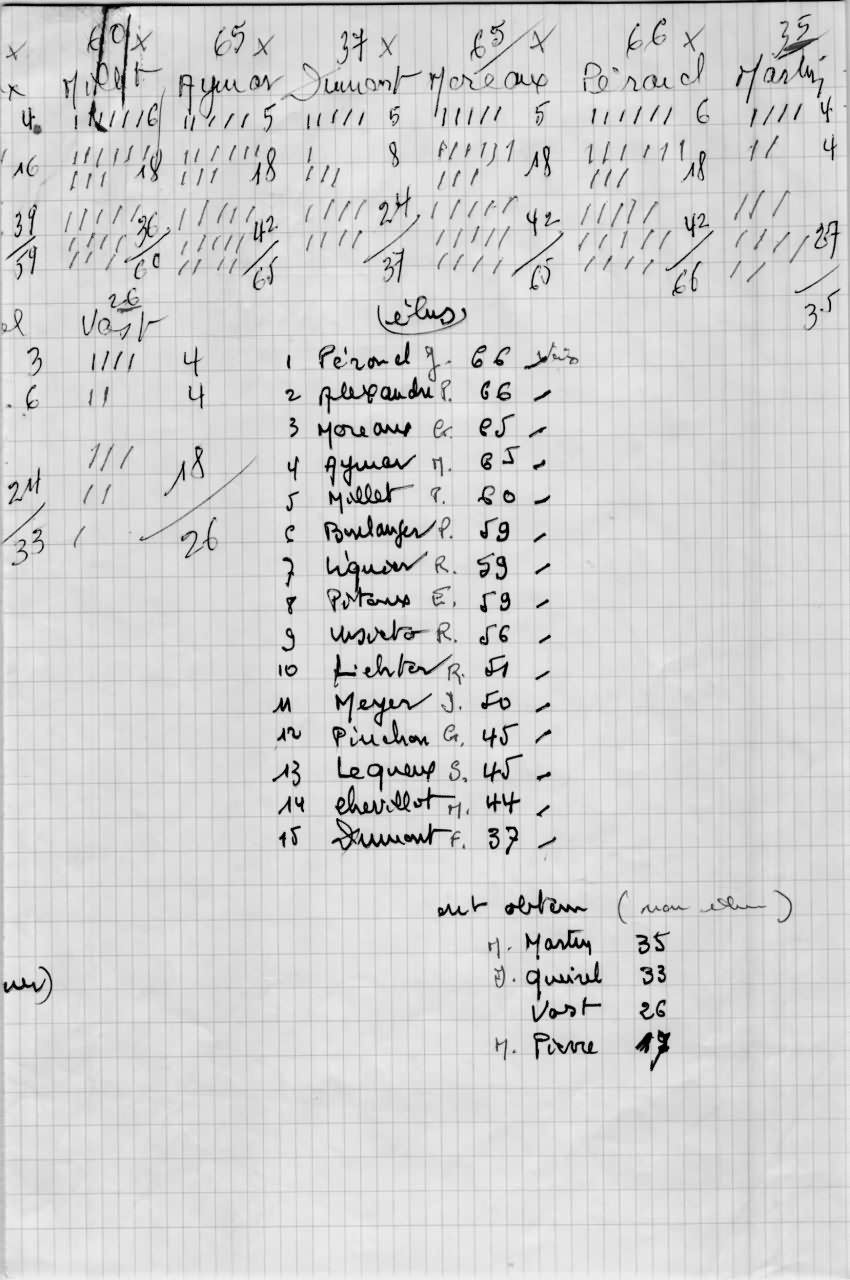 x 60 x 65 x 37 x 65 x 66 x 35
x Millet Aymar Dumont Moreaux Pérard Martin
4 6 5 5 5 6 4
16 18 18 8 18 18 4
39 36 42 24 42 42 27
59 60 65 37 65 66 35
26
el Vast (élus)
3 4
6 4
24 18
33 26
1 Pérard J. 66 voix
2 Alexandre P. 66 "
3 Moreaux G. 65 "
4 Aymar M. 65 "
5 Millet P. 60 "
6 Boulanger P. 59 "
7 R. 59 "
8 E. 59 "
9 R. 56 "
10 R. 51 "
11 Meyer J. 50 "
12 Pinchon G. 45 "
13 Lequeux S. 45 "
14 Chevillot M. 44 "
15 Dumont F. 37 "
ont obtenu (non élus)
M. Martin 35
J. Quirel 33
Vast 26
M. Pierre 17